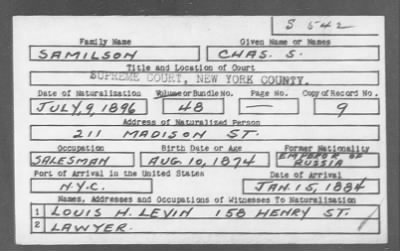 S 542
Family Name Given Name or Names
SAMILSON CHAS. S.
Title and Location of Court
SUPREME COURT, NEW YORK COUNTY.
Date of Naturalization Volume or Bundle No. Page No. Copy of Record No.
JULY, 9, 1896 48 — 9
Address of Naturalized Person
211 MADISON ST.
Occupation Birth Date or Age Former Nationality
SALESMAN AUG. 10, 1874 EMPEROR OF RUSSIA
Port of Arrival in the United States Date of Arrival
N.Y.C. JAN. 15, 1884
Names, Addresses and Occupations of Witnesses To Naturalization
1 LOUIS H. LEVIN 158 HENRY ST.
2 LAWYER.